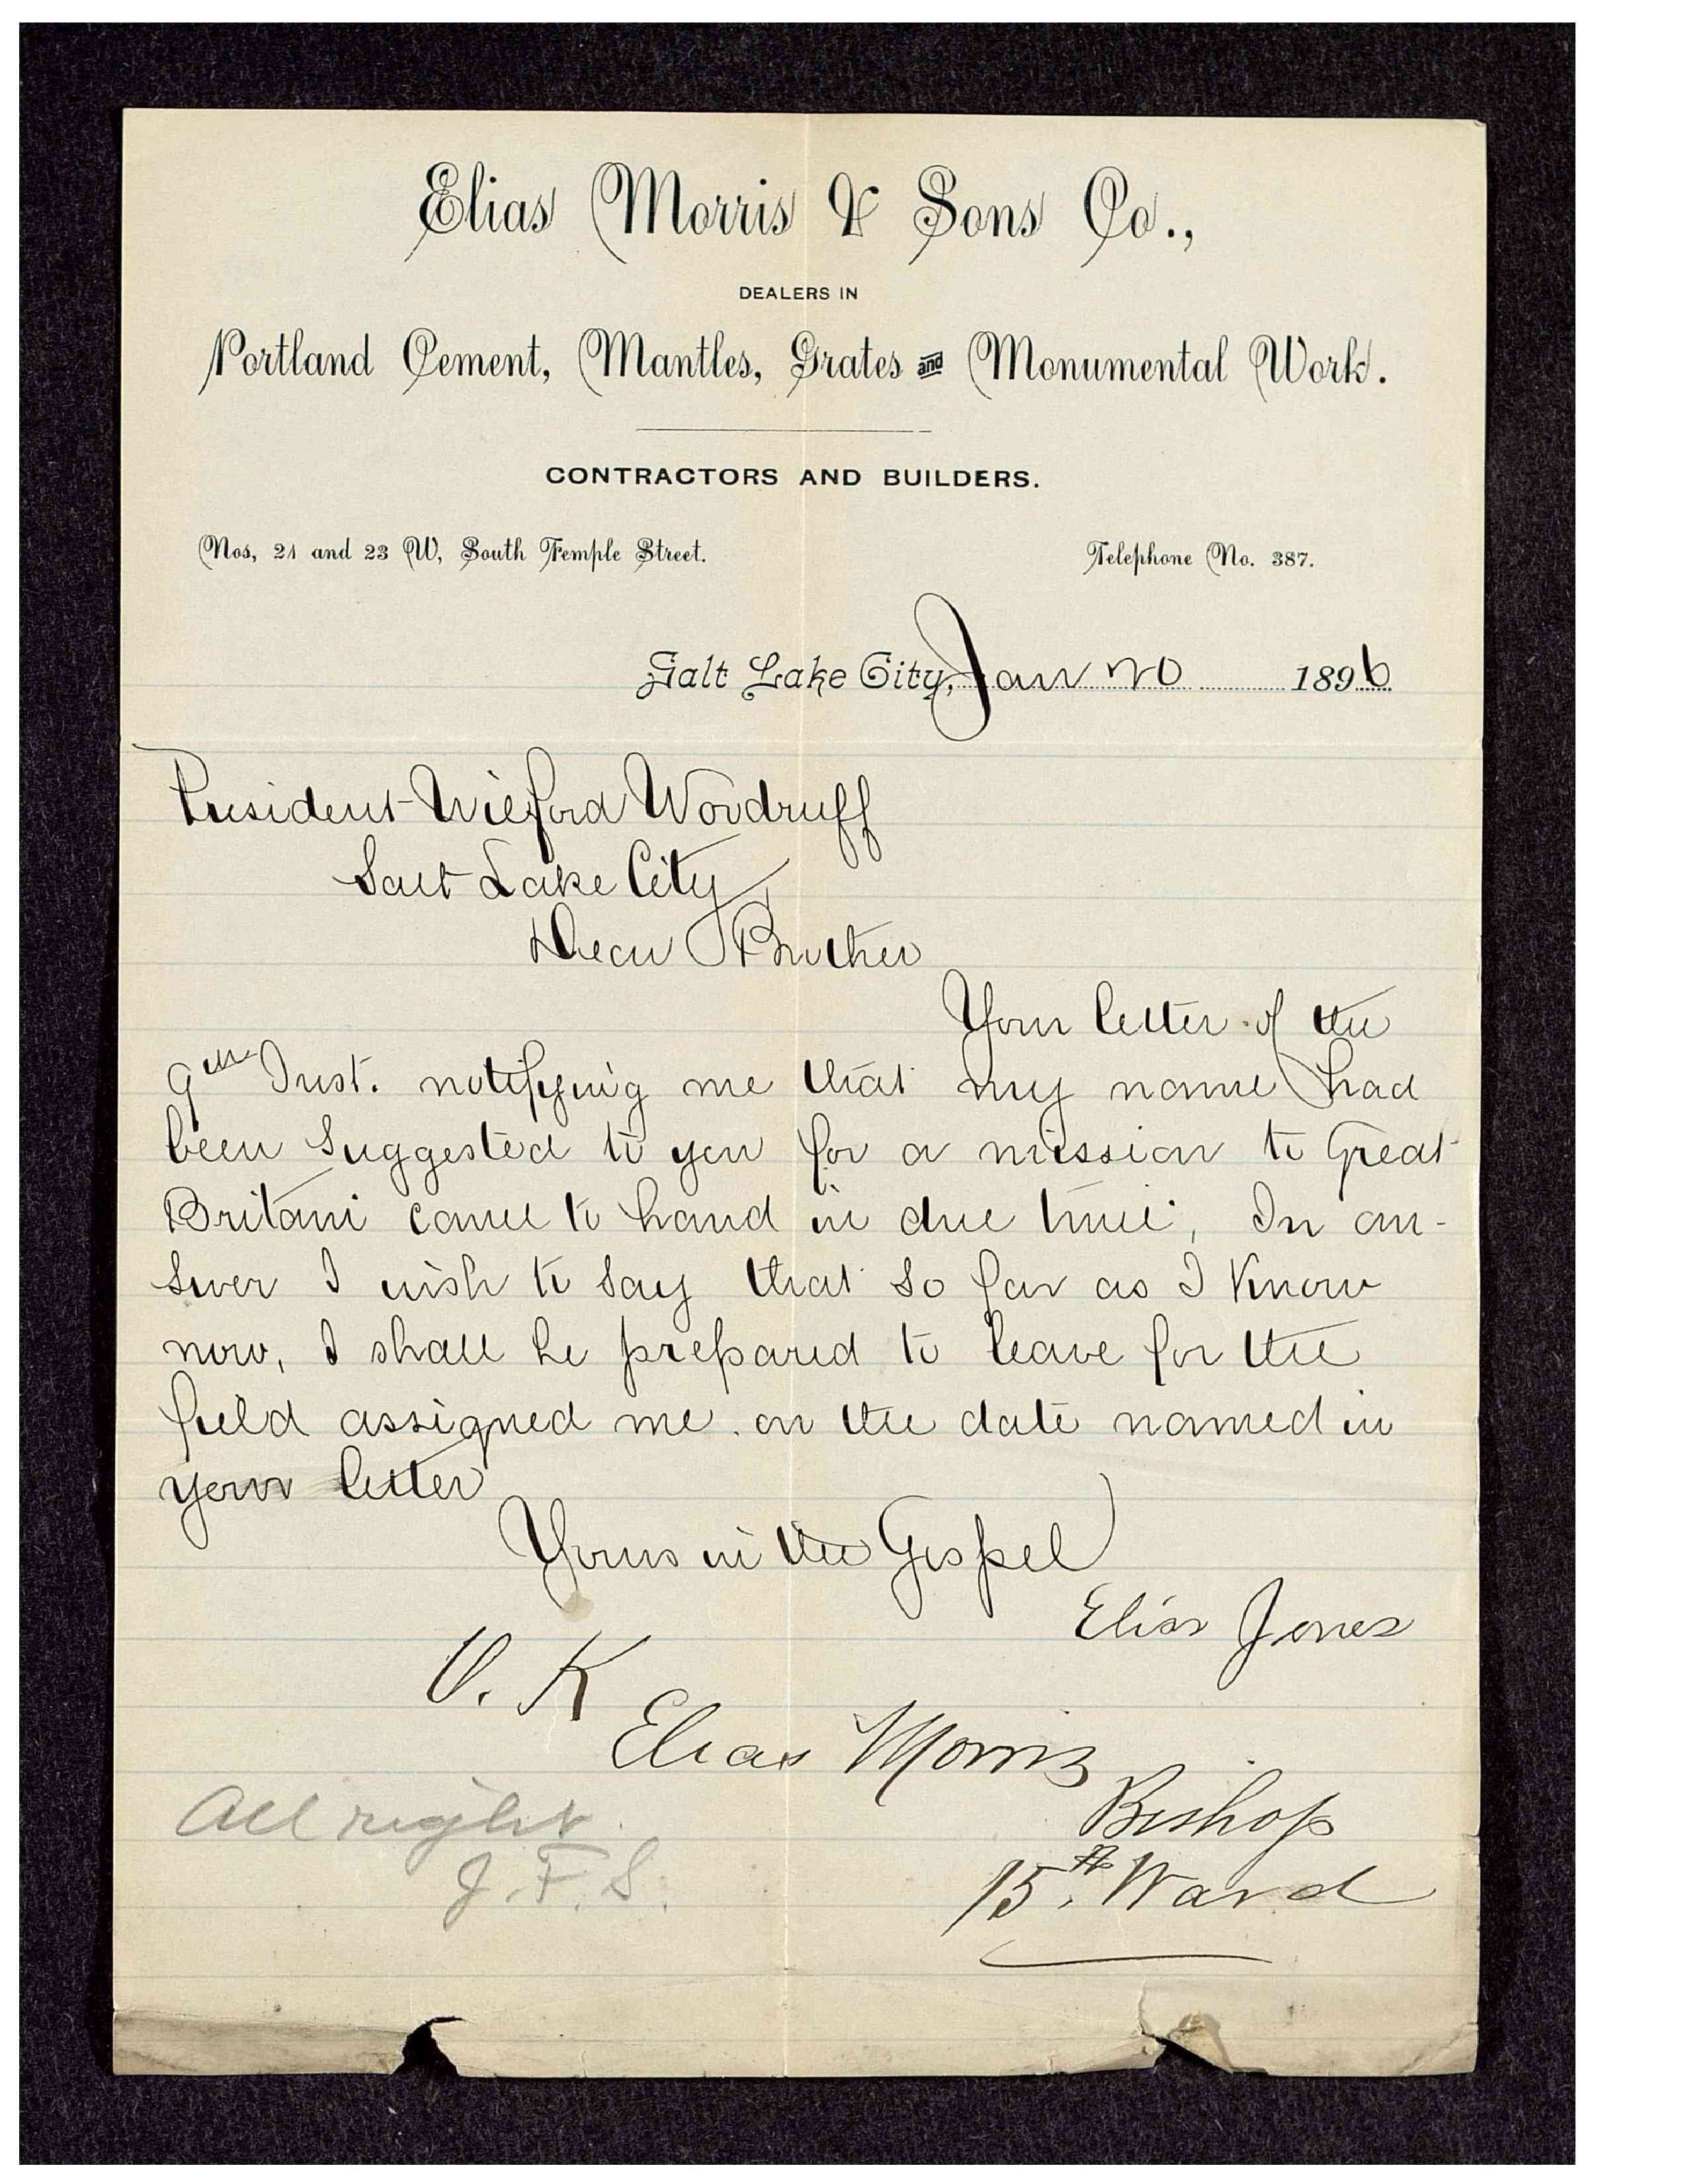 Elias Morris & Sons Co.,
DEALERS IN
Portland Cement, Mantles, Grates and Monumental Work.
CONTRACTORS AND BUILDERS.
Nos, 21 and 23 W, South Temple Street.
Telephone No. 387.
Salt Lake City, Jan 20 1896
President Wilford Woodruff
Salt Lake City
Dear Brother
Your letter of the
9th Inst. notifying me that my name had
been Suggested to you for a mission to Great
Britain came to hand in due time, In an-
swer I wish to say that so far as I Know
now, I shall be prepared to leave for the
field assigned me on the date named in
your letter
Yours in the Gospel
Elias Jones
O. K
Elias Morris
Bishop
15th Ward
All right.
J. F. S.